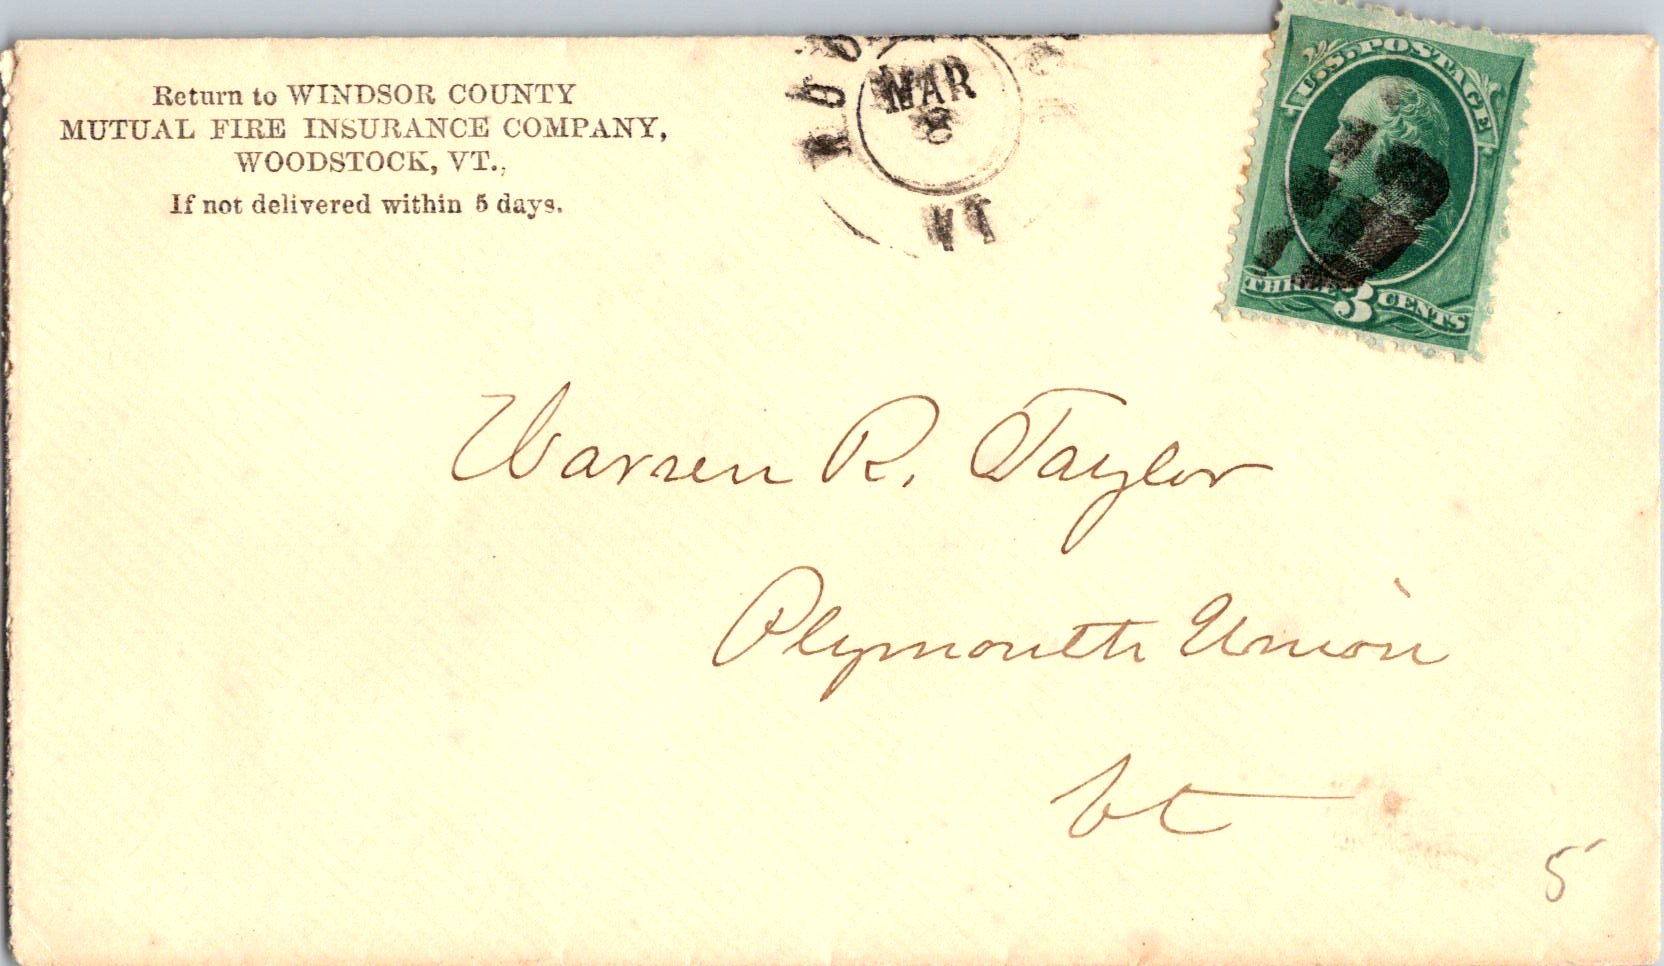 Return to WINDSOR COUNTY
MUTUAL FIRE INSURANCE COMPANY,
WOODSTOCK, VT.,
If not delivered within 5 days.
MAR
8
VT
U.S. POSTAGE
THREE 3 CENTS
Warren R. Taylor
Plymouth Union
Vt
5